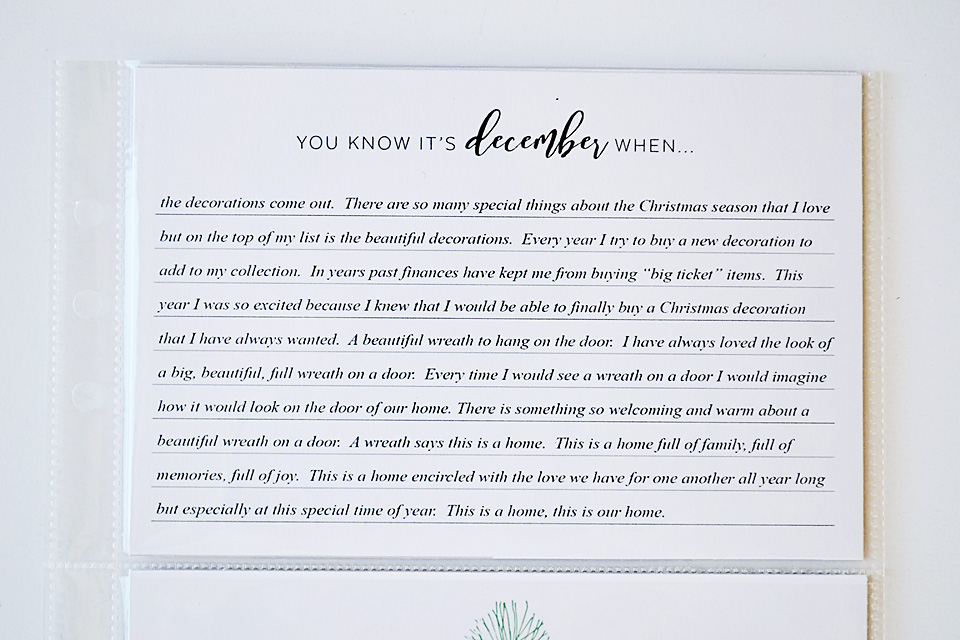 YOU KNOW IT'S december WHEN...
the decorations come out. There are so many special things about the Christmas season that I love
but on the top of my list is the beautiful decorations. Every year I try to buy a new decoration to
add to my collection. In years past finances have kept me from buying "big ticket" items. This
year I was so excited because I knew that I would be able to finally buy a Christmas decoration
that I have always wanted. A beautiful wreath to hang on the door. I have always loved the look of
a big, beautiful, full wreath on a door. Every time I would see a wreath on a door I would imagine
how it would look on the door of our home. There is something so welcoming and warm about a
beautiful wreath on a door. A wreath says this is a home. This is a home full of family, full of
memories, full of joy. This is a home encircled with the love we have for one another all year long
but especially at this special time of year. This is a home, this is our home.